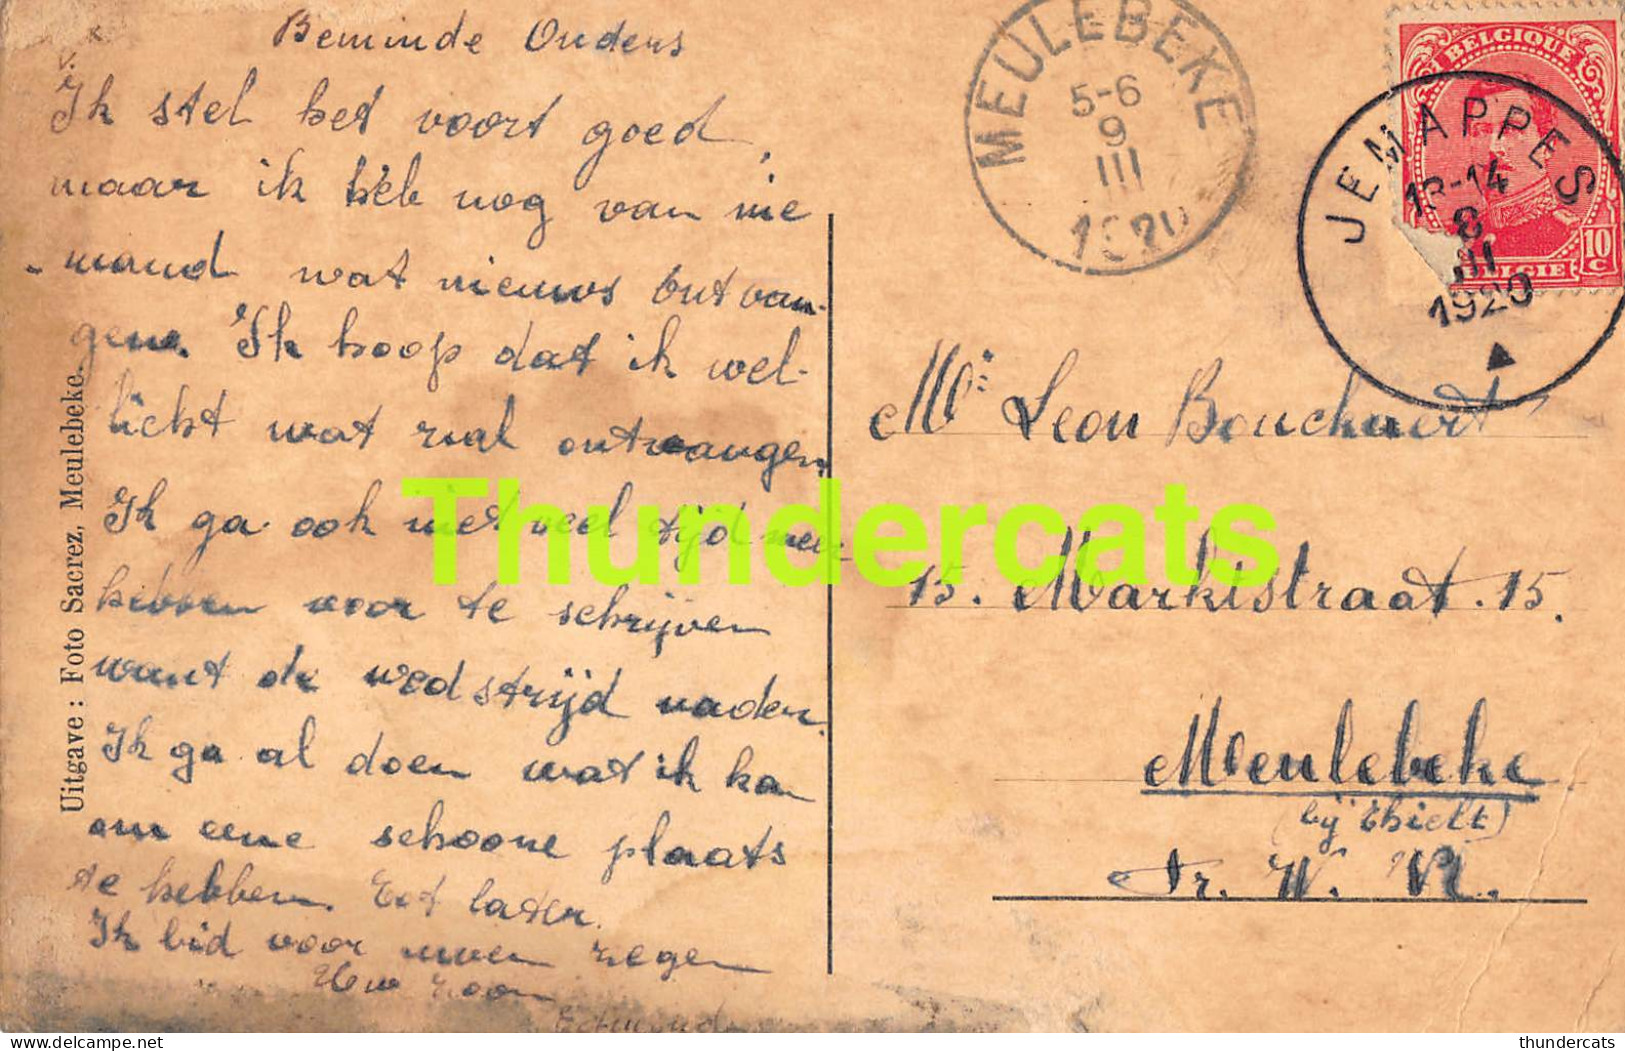 Beminde Ouders
Ik stel het voort goed,
maar ik heb nog van nie
mand wat nieuws ontvan-
gene. Ik hoop dat ik wel-
licht wat zal ontvangen
Ik ga ook niet veel tijd meer
hebben voor te schrijven
want de wedstrijd nadert.
Ik ga al doen wat ik kan
om eene schoone plaats
te hebben. Tot later.
Ik bid voor uwen zegen
Uw zoon
Edmond
Uitgave: Foto Sacrez, Meulebeke.
MEULEBEKE
5-6
9
III
1920
BELGIQUE
BELGIE
10 C
JEMAPPES
13-14
8
III
1920
Mr Leon Bouchaert
15. Marktstraat. 15.
Meulebeke
(bij Thielt)
Fr. W. Vl.
Thundercats
thundercats